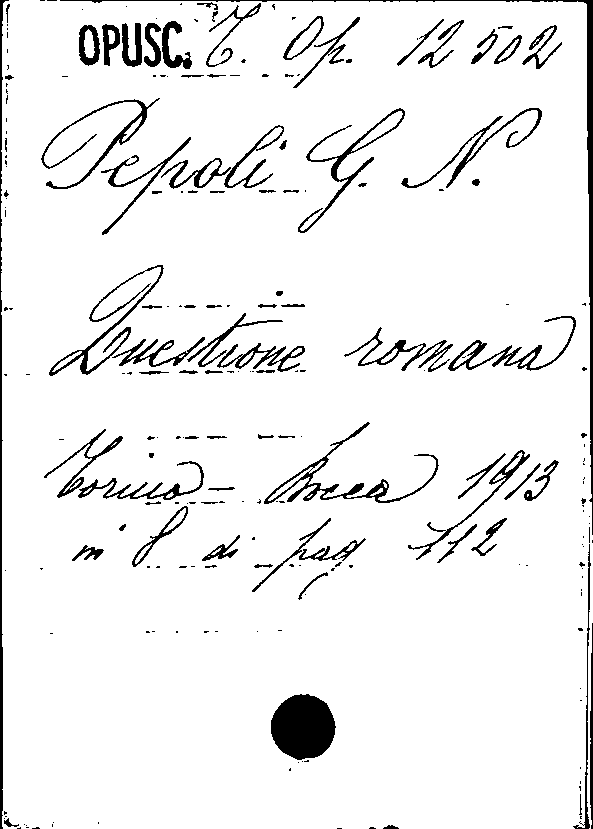 OPUSC. T. Op. 12502
Pepoli G. N.
Questione romana
Torino - Bocca 1913
in 8 di pag 112